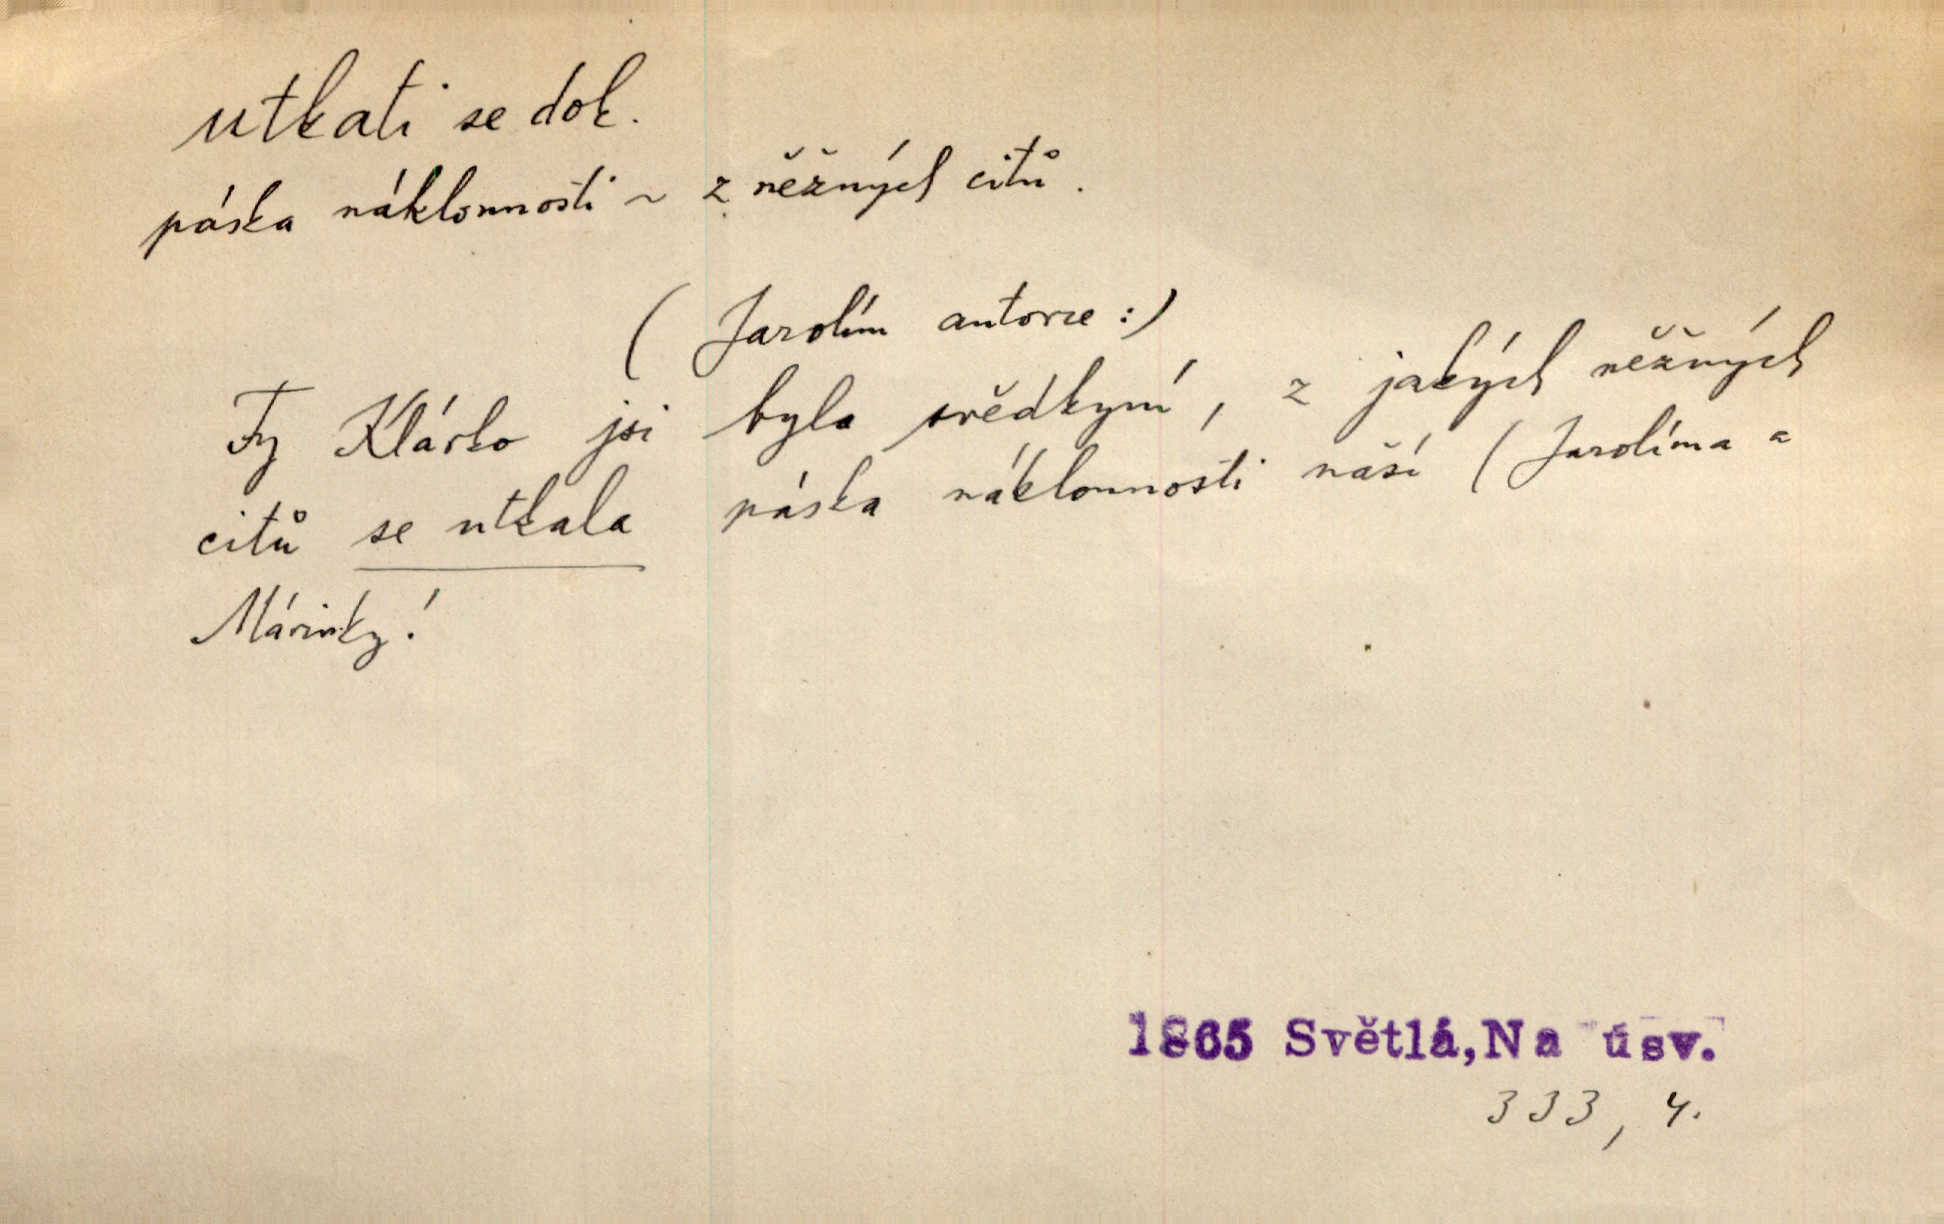 utkati se dok.
páska náklonnosti ~ z něžných citů.
(Jarolím autorce:)
Ty Klárko jsi byla svědkyní, z jakých něžných
citů se utkala páska náklonnosti naší (Jarolíma a
Márinky!
1865 Světlá,Na úsv.
333, 4.